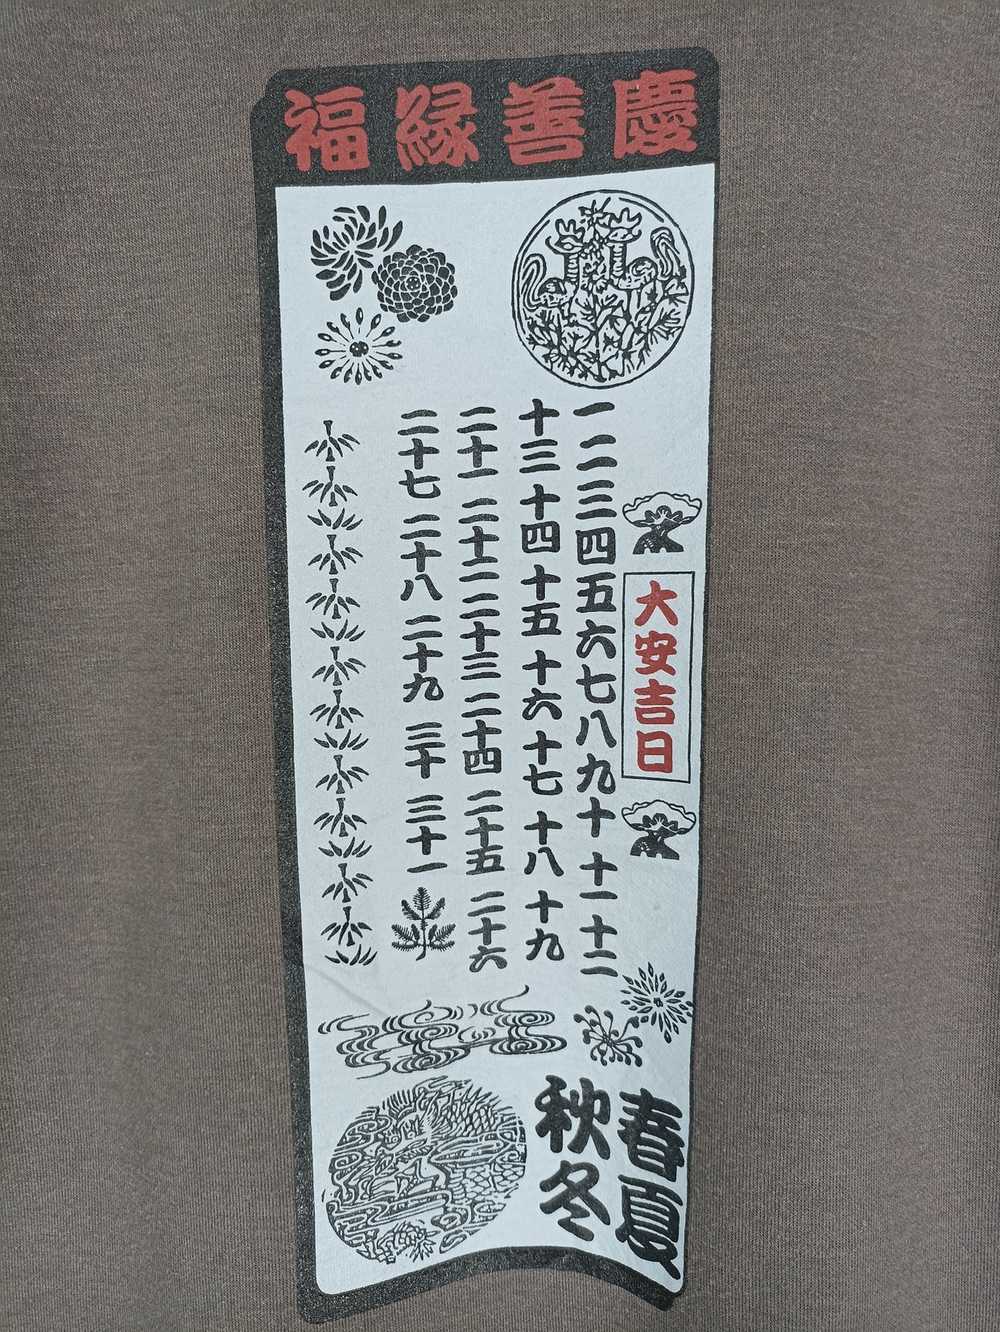 福縁善慶
大安吉日
一二三四五六七八九十 十一 十二
十三 十四 十五 十六 十七 十八 十九
二十一 二十二 二十三 二十四 二十五 二十六
二十七 二十八 二十九 三十 三十一
春夏
秋冬